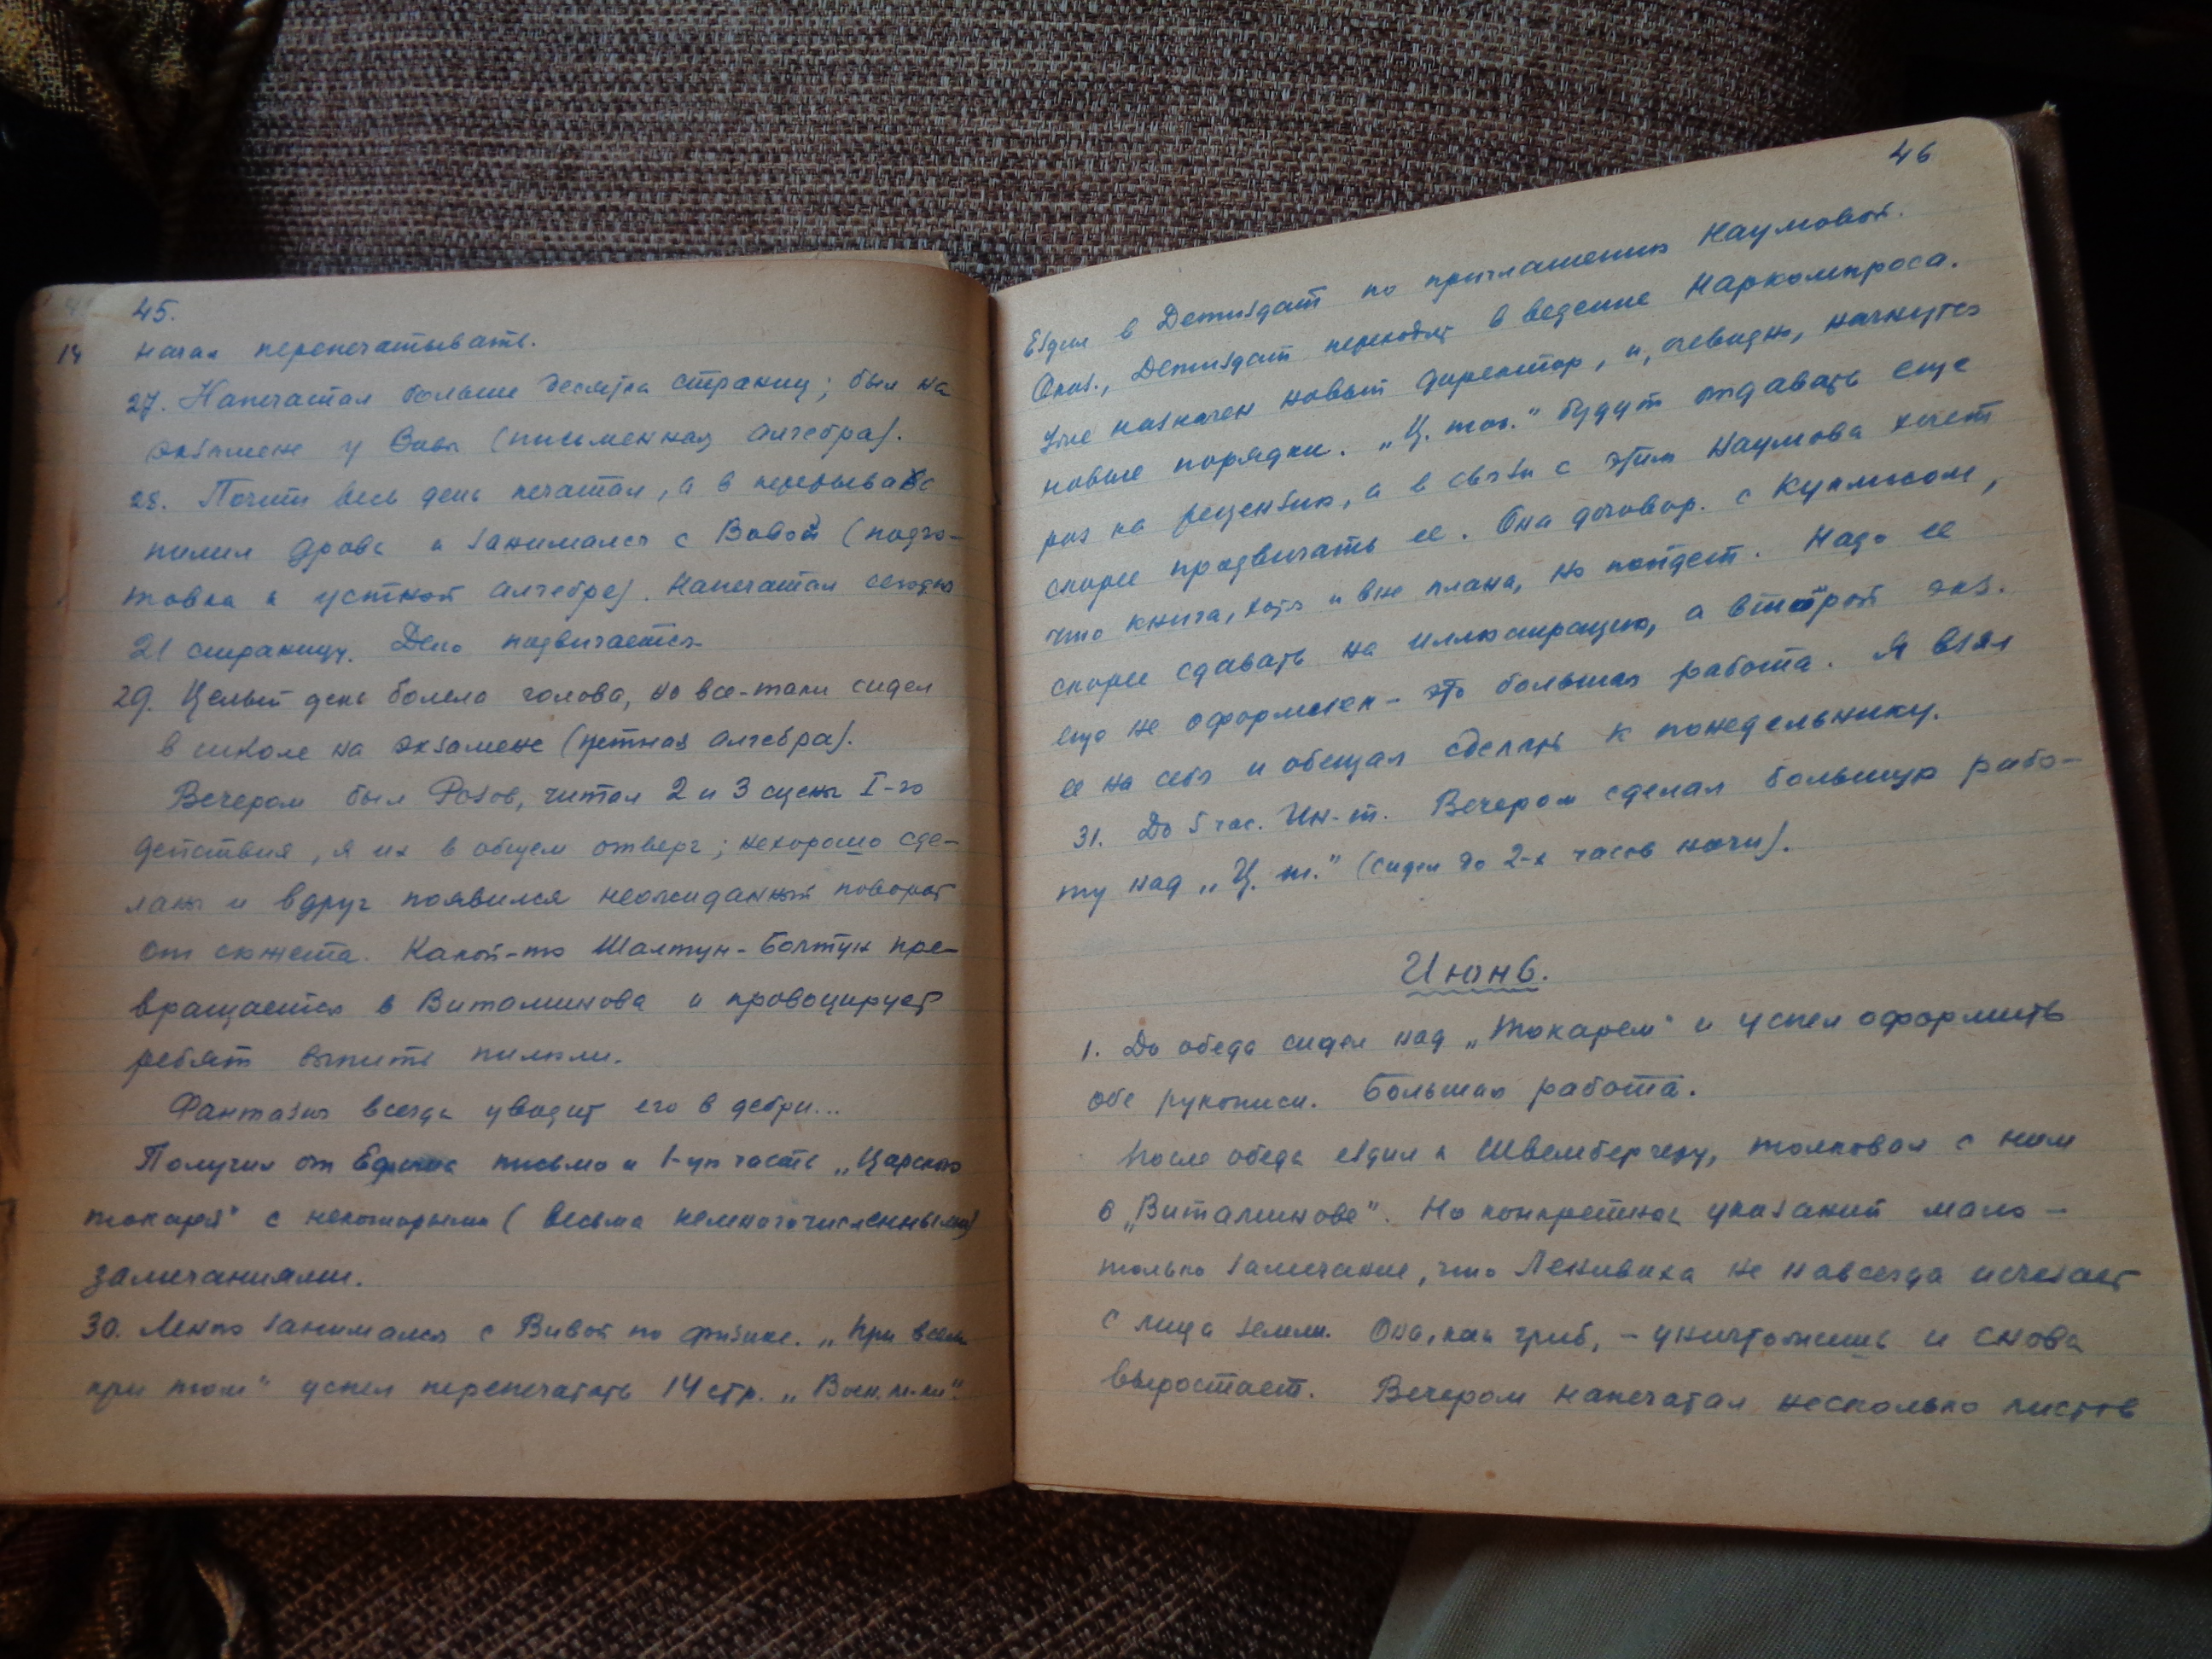 45.
начал перепечатывать.
27. Напечатал больше десятка страниц; был на
экзамене у Вовы (письменная алгебра).
28. Почти весь день печатал, а в перерывах
пилил дрова и занимался с Вовой (подго-
товка к устной алгебре). Напечатал сегодня
21 страницу. Дело подвигается.
29. Целый день болела голова, но все-таки сидел
в школе на экзамене (устная алгебра).
Вечером был Розов, читал 2 и 3 сцены I-го
действия, я их в общем отверг; нехорошо сде-
ланы и вдруг появился неожиданный поворот
от сюжета. Какой-то Шалтун-Болтун пре-
вращается в Витаминова и провоцирует
ребят выпить пилюли.
Фантазия всегда уводит его в дебри...
Получил от Ефима письмо и 1-ую часть „Царского
токаря" с некоторыми (весьма немногочисленными)
замечаниями.
30. Легко занимался с Вивой по физике. „При всем
при том" успел перепечатать 14 стр. „Воен. м-ки".
46
Ездил в Детиздат по приглашению Наумовой.
Оказ., Детиздат переходит в ведение Наркомпроса.
Уже назначен новый директор, и, очевидно, начнутся
новые порядки. „Ц. ток." будут отдавать еще
раз на рецензию, а в связи с этим Наумова хочет
скорее продвигать ее. Она договор. с
что книга, хотя и вне плана, но пойдет. Надо ее
скорее сдавать на иллюстрацию, а второй экз.
еще не оформлен - это большая работа. Я взял
ее на себя и обещал сделать к понедельнику.
31. До 5 час. Ин-т. Вечером сделал большую рабо-
ту над „Ц. т." (сидел до 2-х часов ночи).
Июнь.
1. До обеда сидел над „Токарем" и успел оформить
обе рукописи. Большая работа.
После обеда ездил к Швембергеру, толковал с ним
о „Витаминове". Но конкретных указаний мало -
только замечание, что Ленивиха не навсегда исчезает
с лица земли. Она, как гриб, - уничтожишь и снова
выростает. Вечером напечатал несколько листов